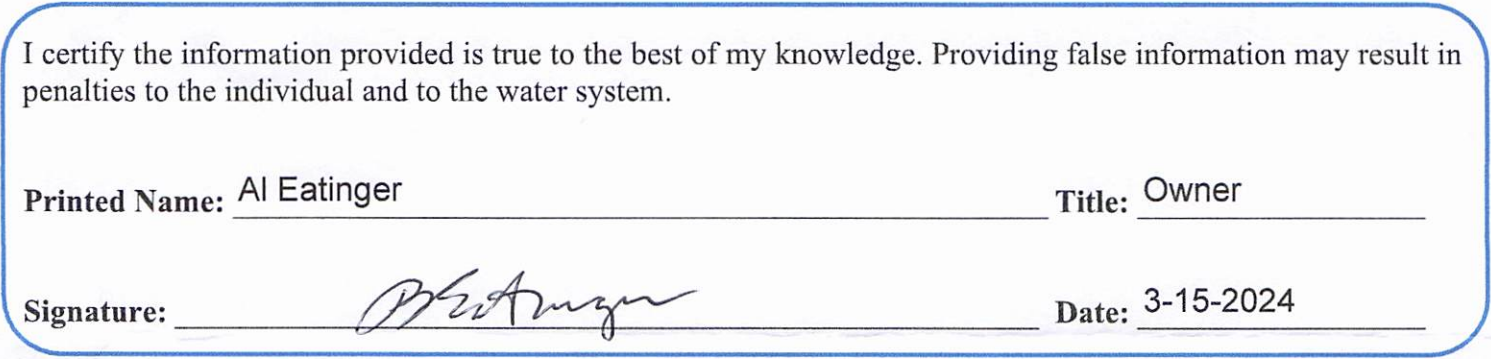 I certify the information provided is true to the best of my knowledge. Providing false information may result in
penalties to the individual and to the water system.
Printed Name: Al Eatinger Title: Owner
Signature: Eatinger Date: 3-15-2024